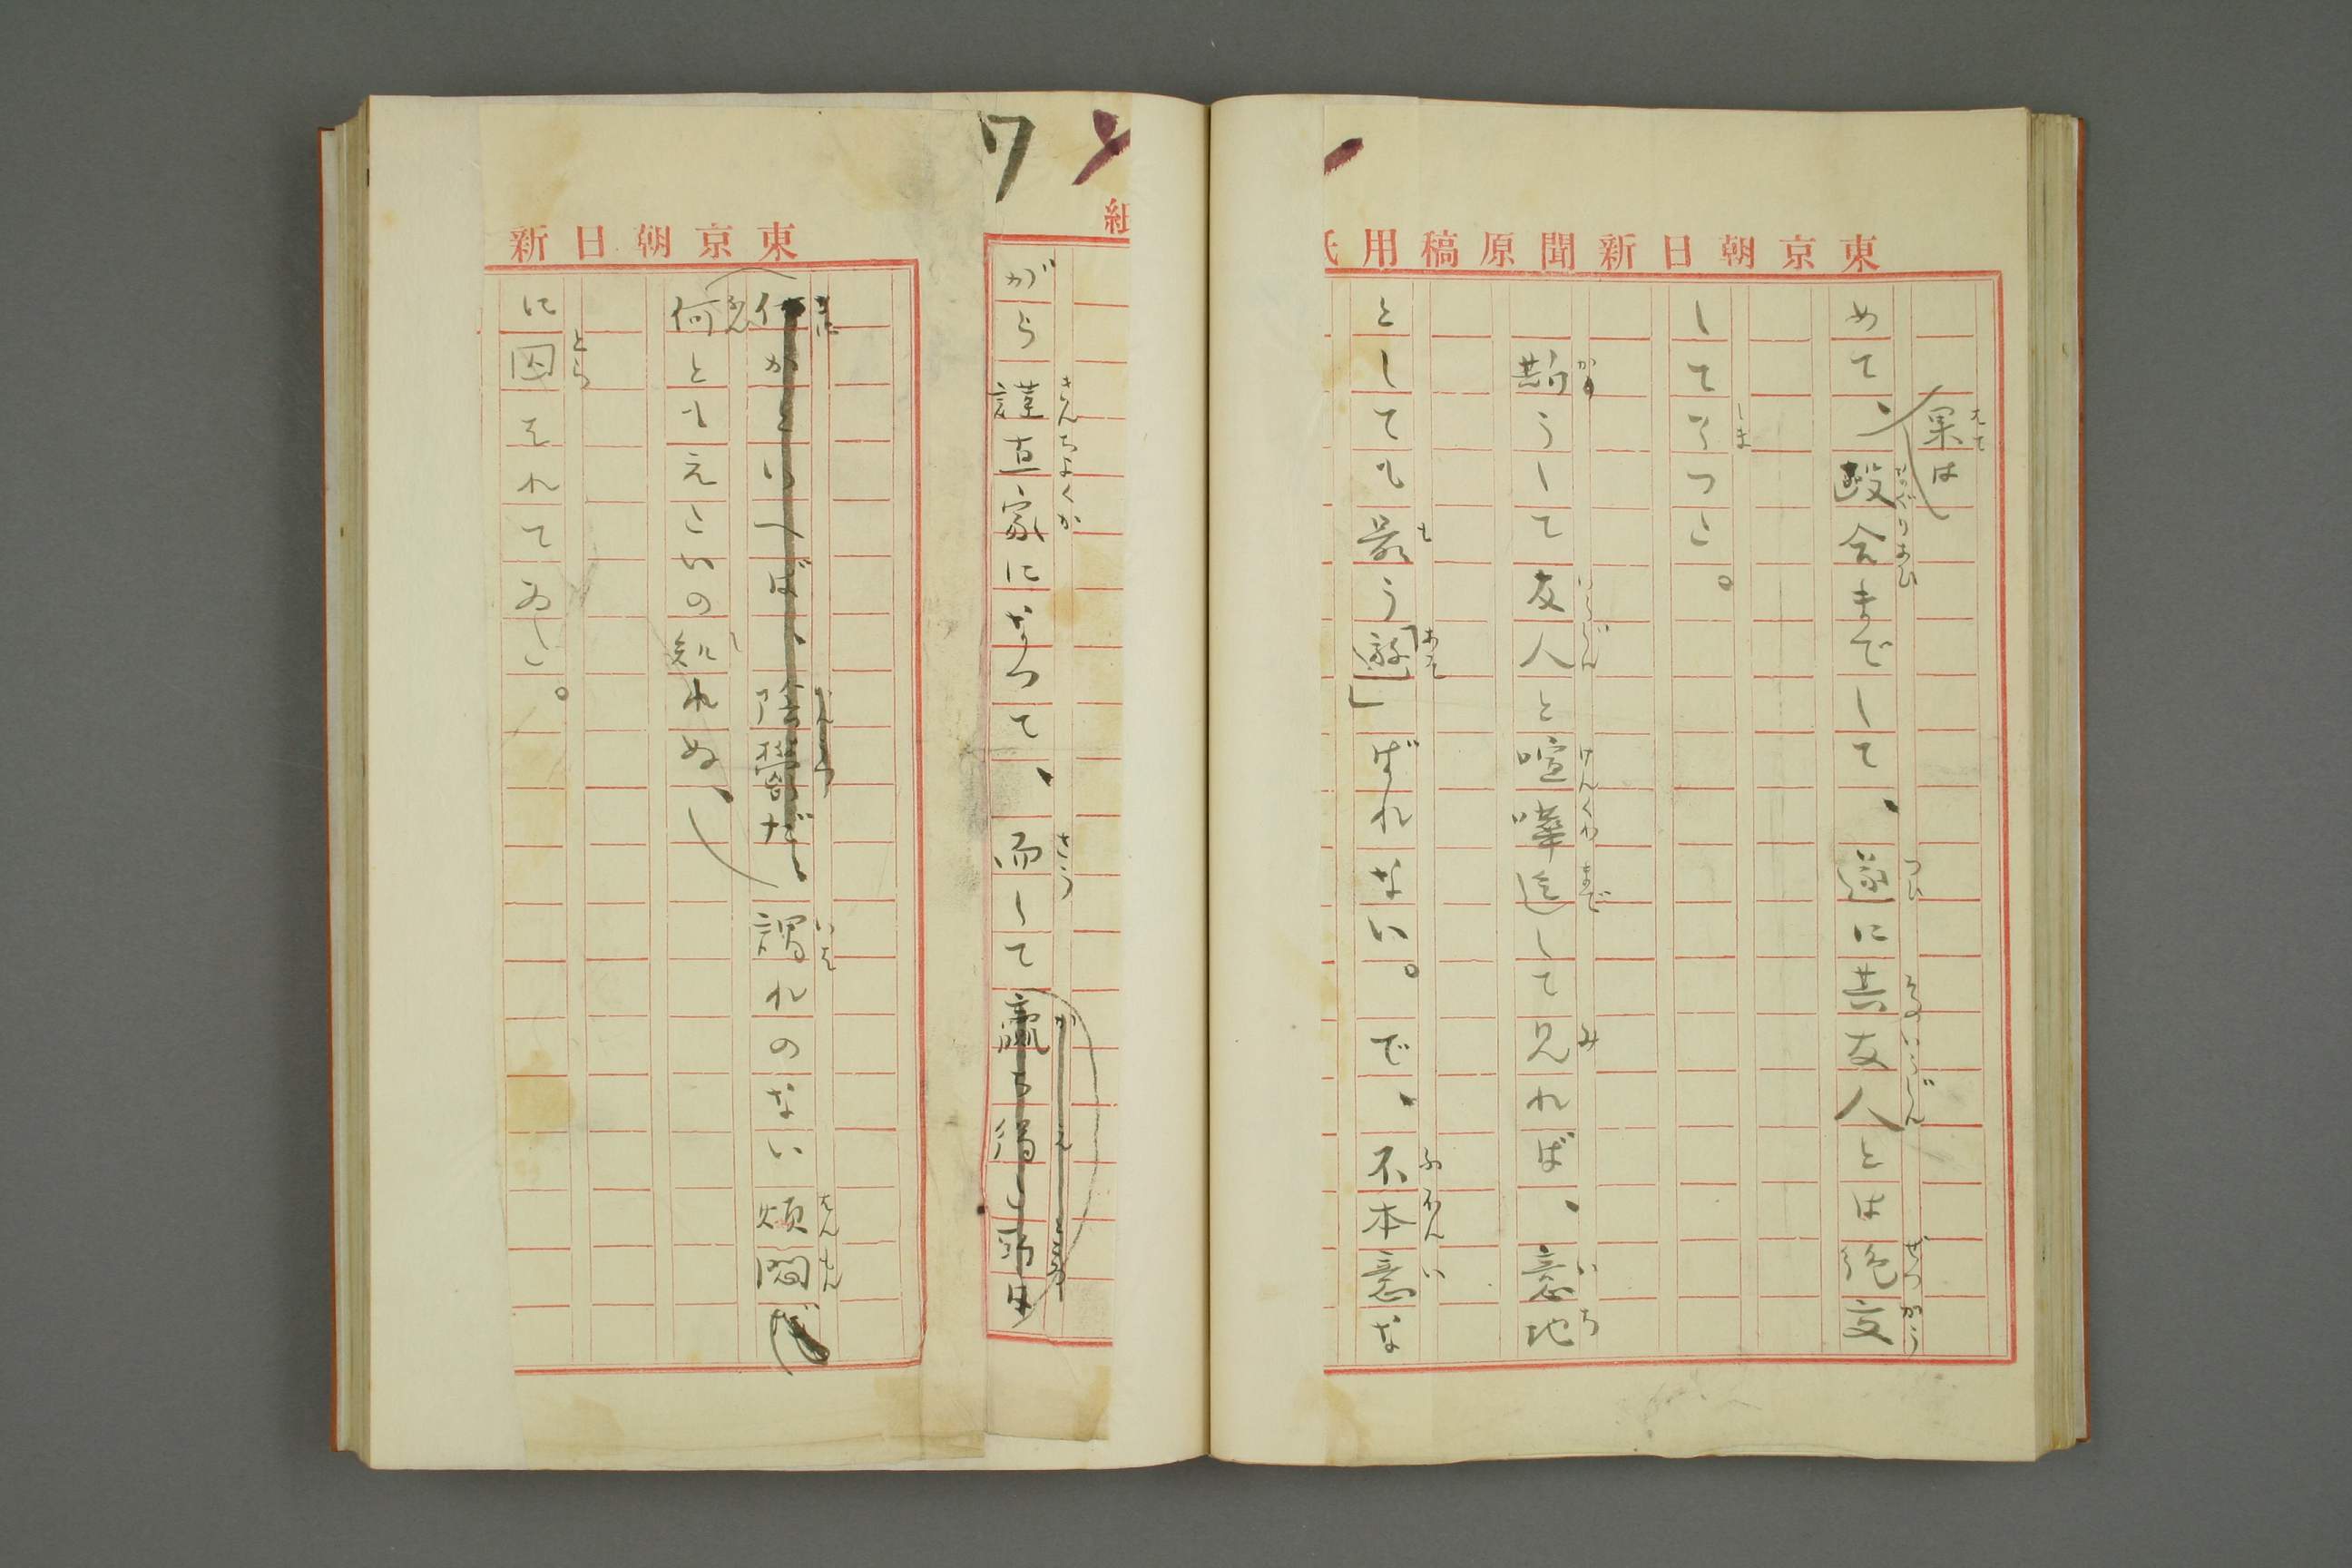 東京朝日新聞原稿用紙
果は
めて、殴合までして、遂に其友人とは絶交
して了つた。
斯うして友人と喧嘩迄して見れば、意地
としても最う「遊」ばれない。で、不本意な
紙
がら謹直家になつて、而して羸ち得た所は
東京朝日新
何かといへば、陰鬱だ、謂れのない煩悶
何ともえたいの知れぬ、
に囚はれてゐた。